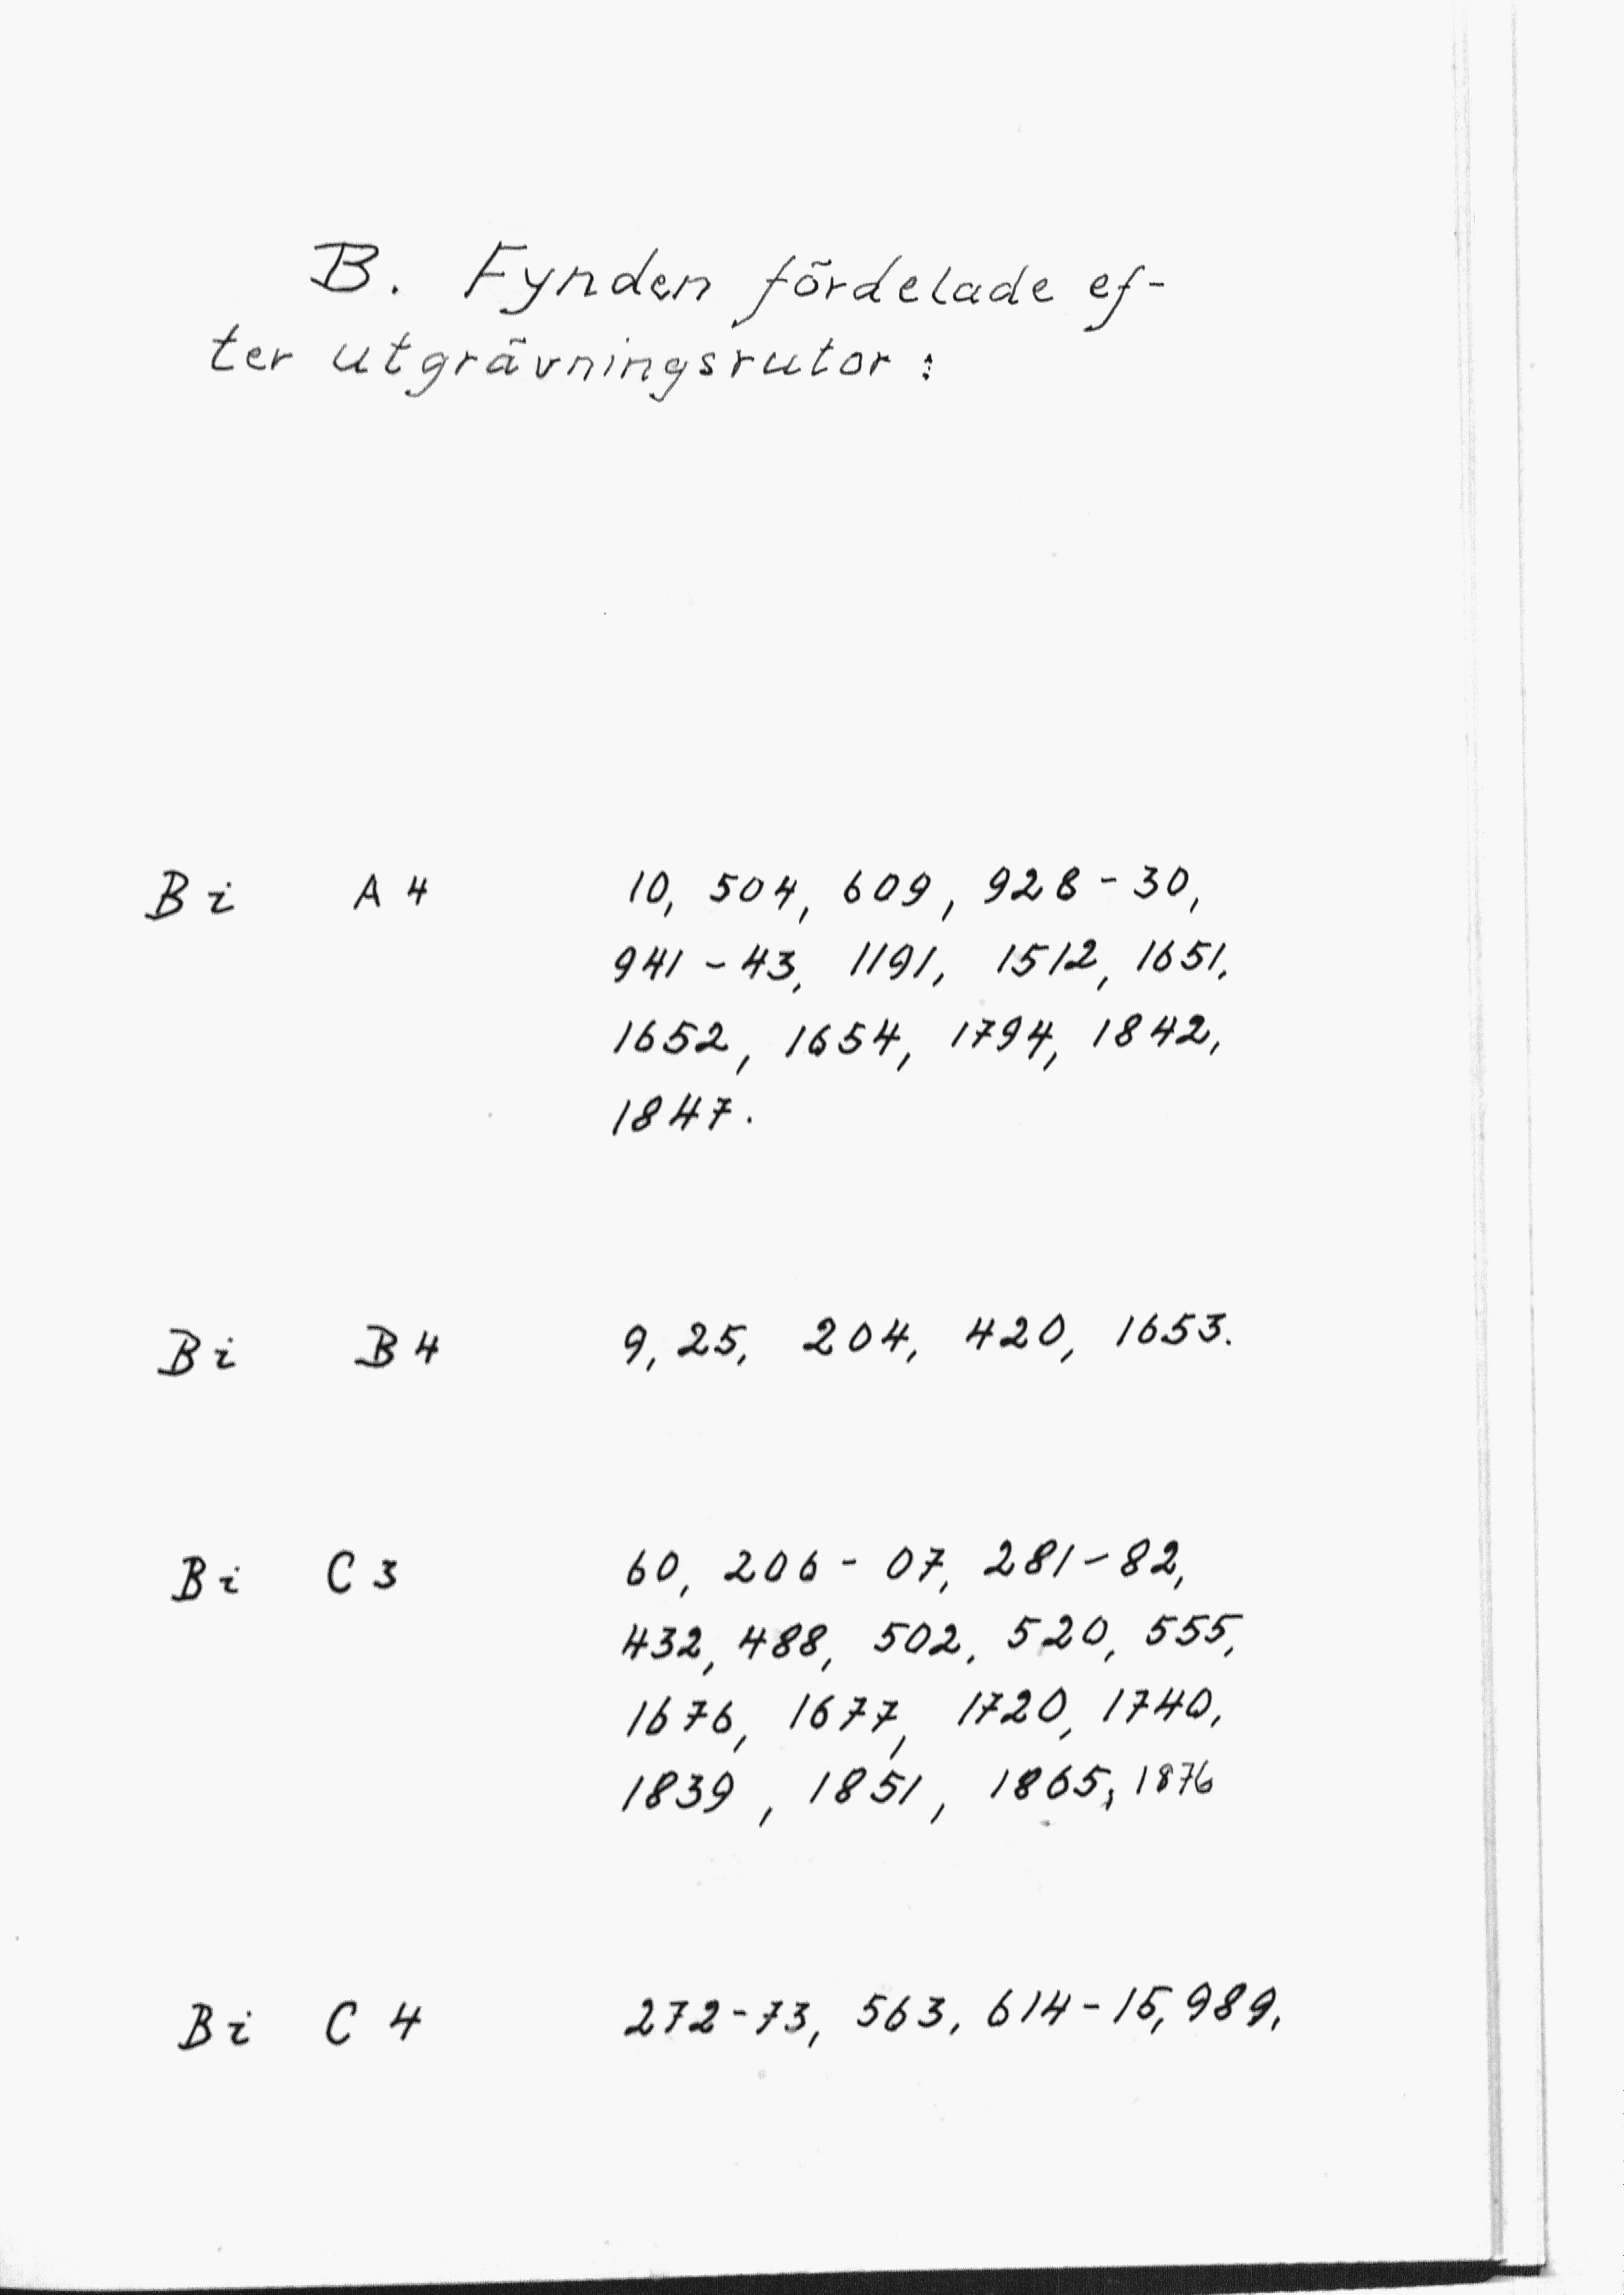 B. Fynden fördelade ef-
ter utgrävningsrutor:
Bi A4 10, 504, 609, 928-30,
941-43, 1191, 1512, 1651,
1652, 1654, 1794, 1842,
1847.
Bi B4 9, 25, 204, 420, 1653.
Bi C3 60, 206-07, 281-82,
432, 488, 502, 520, 555,
1676, 1677, 1720, 1740,
1839, 1851, 1865, 1876
Bi C4 272-73, 563, 614-15, 989,